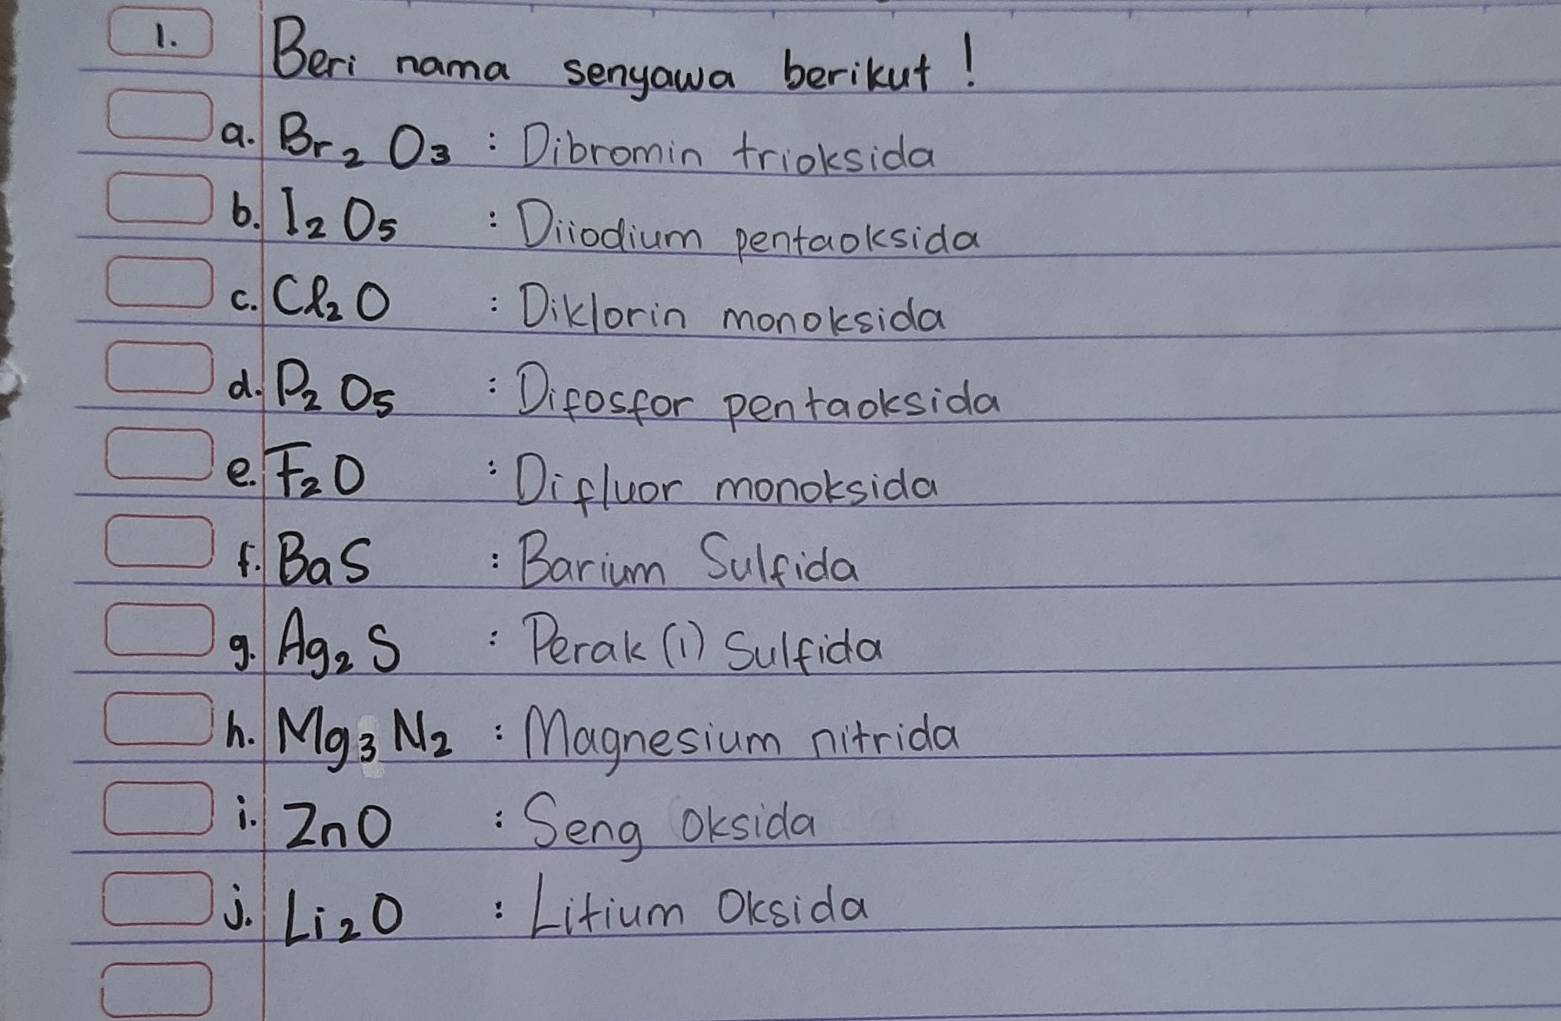 1. Beri nama senyawa berikut !
a. Br₂ O₃ : Dibromin trioksida
b. I₂ O₅ : Diiodium pentaoksida
c. Cl₂ O : Diklorin monoksida
d. P₂ O₅ : Difosfor pentaoksida
e. F₂ O : Difluor monoksida
f. Ba S : Barium Sulfida
g. Ag₂ S : Perak (1) Sulfida
h. Mg₃ N₂ : Magnesium nitrida
i. ZnO : Seng Oksida
j. Li₂O : Litium Oksida